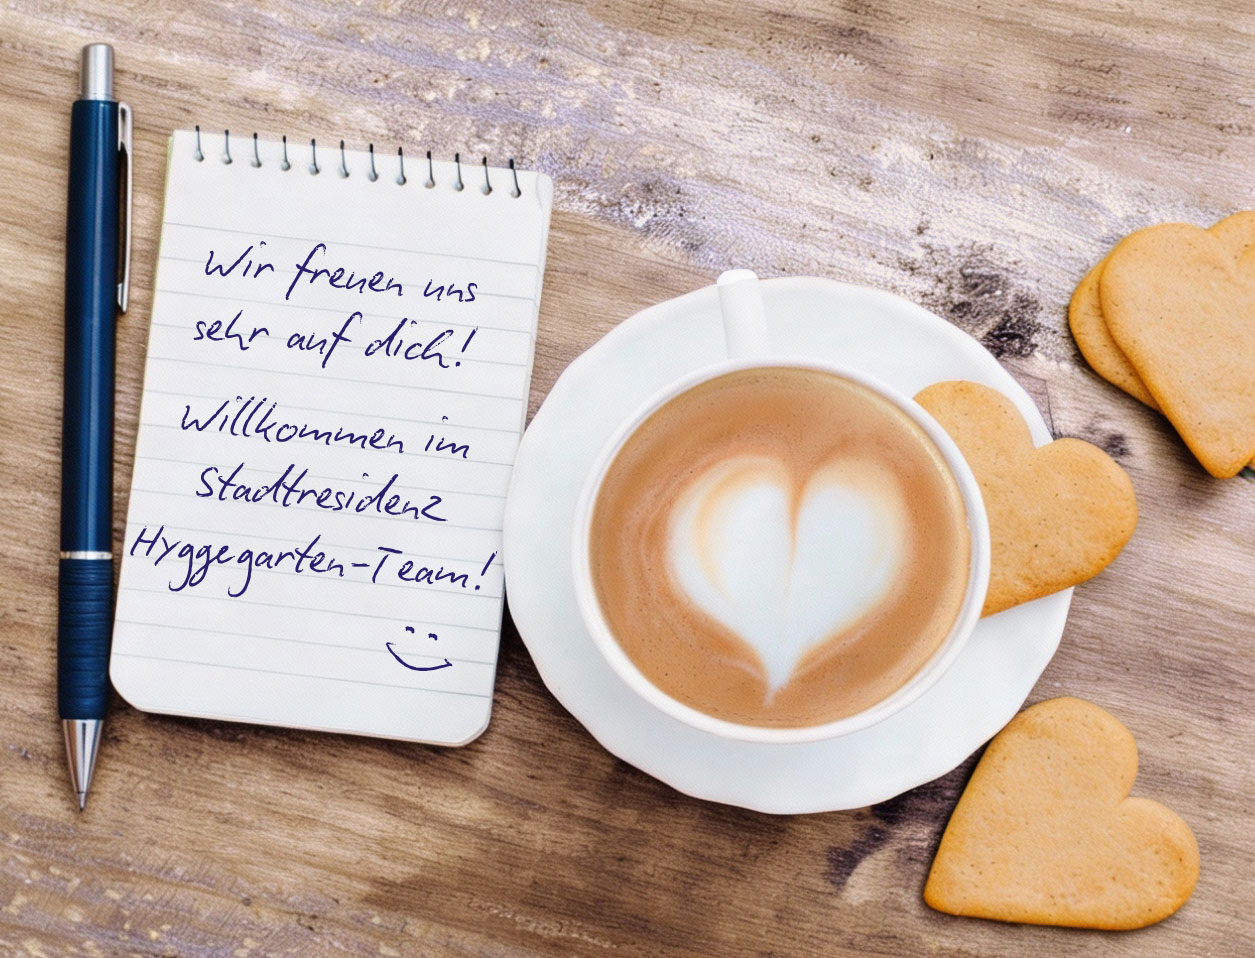 Wir freuen uns
sehr auf dich!
Willkommen im
Stadtresidenz
Hyggegarten-Team!